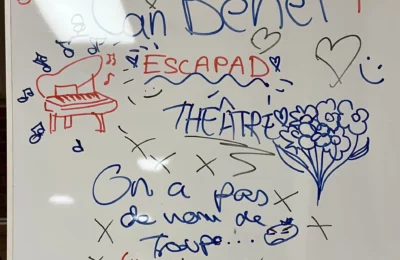 Can Benet
ESCAPAD
THÉÂTRE
On a pas
de nom de
Troupe...